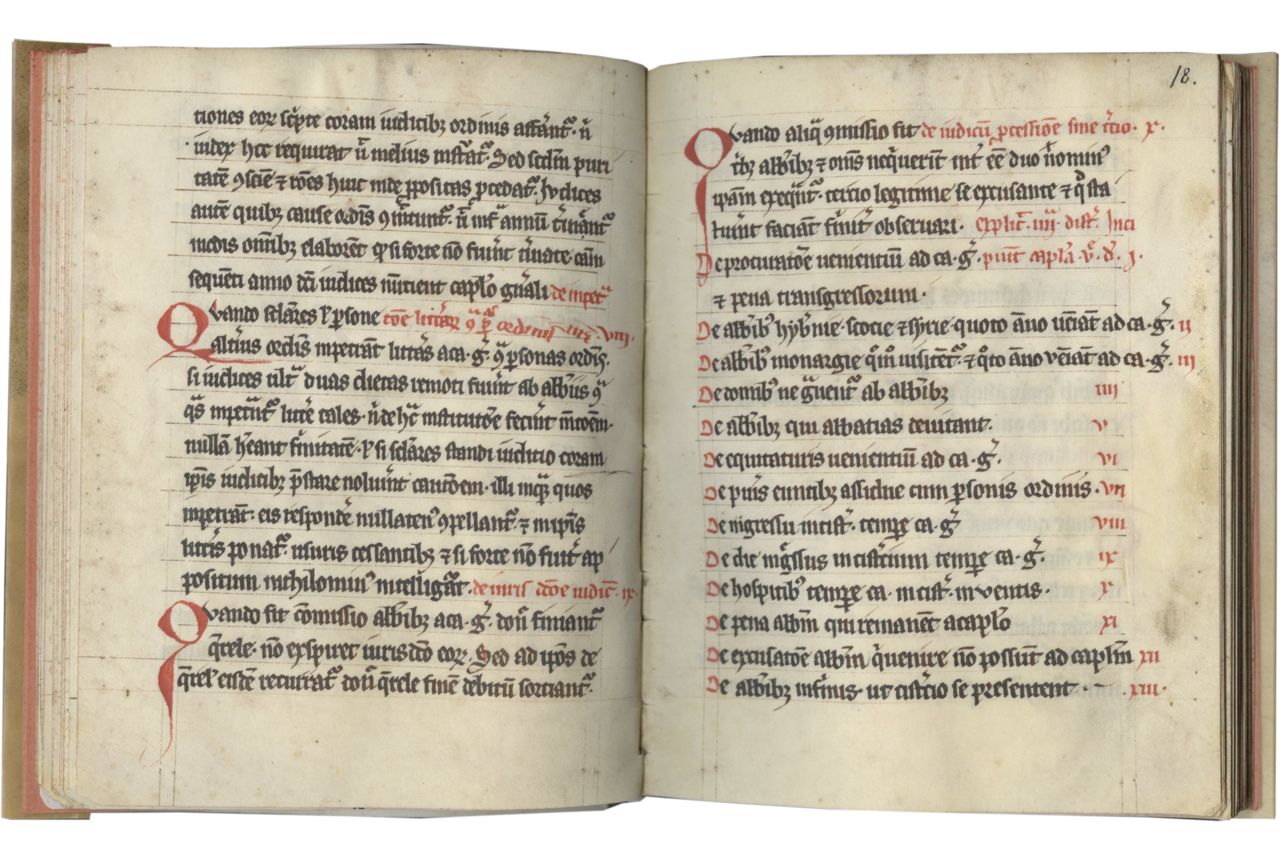 tiones eoꝝ sc̉pte coram iudicibꝫ ordinis assc̉ant᷑. ul̉
iudex hec requirat ul̉ melius instat᷑. Sed scd̄m puri
tatē ꝯsciē ⁊ rōes huic inde ꝓpositas ꝓcedat᷑. Iudices
autē quibꝫ cause ordīs
modis om̄ibꝫ elaborēt qd̉ si forte nō fuerint t̉minate. cām
sequēti anno dc̄i iudices nūtient cap̄lo gn̄ali de inpet᷑
Quando scl̄ares ul̉ ꝑsone
alterius ordinis inpetrāt litt̉as a ca. g̉. ꝯ̉ ꝑsonas ordīs.
si iudices ult̉ duas dietas remoti fuerint ab abb̄iis ꝯ̉
q̉s inpetrāt᷑ litt̉e tales. ul̉ de hac institutōe fecerint mc̄ōem.
nullā h̉eant firmitatē. ul̉ si scl̄ares standi iudicio coram
ip̄is iudicibꝫ p̄stare noluerint cautōem. illi inq̉ꝫ quos
inpetrāt. eis respondere nullaten᷒ ꝯpellant᷑. ⁊ in ip̄is
litt̉is ponat᷑. usuris cessantibꝫ ⁊ si forte nō fuerit ap
positum nichilomin᷒ intelligat᷑. de iuris dc̄ōe iudic̄. ix.
Quando fit cōmissio abb̄ibꝫ a ca. g̉. don̉ finiant᷑
q̉rele. nō exspiret iurisdc̄o eoꝝ. Sed ad ip̄os de
q̉rel' eisdē recurat᷑ don̉ q̉rele finē debitū sortiant᷑.
18.
Quando aliq̉ ꝯmissio fit de iudicū ꝓcessiōe sine t̉cio. x.
t̉bꝫ abb̄ibꝫ ⁊ om̄s neq̉uerint int̉ eē duo
ip̄am exeq̉nt᷑. tercio legitime se excusante ⁊ qd̉ sta
tuerint faciāt firmit̉ obseruari. explic̄. iiij. dist̄. Inci
De procuratōe uenientiū ad ca. g̉. piūt cap̄la v̉. d̉. j.
⁊ pena transgressorum.
De abb̄ibꝫ hyb̉nie. scocie ⁊ syrie quoto āno ueniāt ad ca. g̉. ii
De abb̄ibꝫ monargie qm̉ uisitēt᷑. ⁊ q̉to āno ueniāt ad ca. g̉. iii
De domibꝫ ne g̉uent᷑ ab abb̄ibꝫ iiii
De abb̄ibꝫ qui abbatias deuitant. v
De equitaturis uenientiū ad ca. g̉. vi
De pueris euntibꝫ assidue cum ꝑsonis ordinis. vii
De ingressu in cist̉. tempore ca. g̉ viii
De die ingressus in cist̉cium tempore ca. g̉. ix
De hospitibꝫ tempore ca. in cist̉. inuentis. x
De pena abb̄m qui remanēt a cap̄lo xi
De excusatōe abb̄m q̉ uenire nō possunt ad cap̄lm xii
De abb̄ibꝫ infirmis. ut cist̉cio se presentent. xiii.